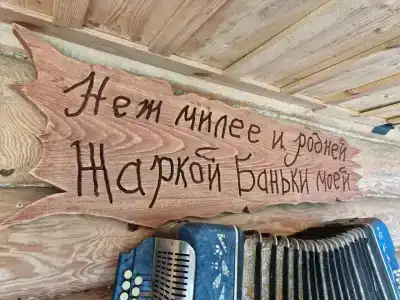 Неж милее и родней
Жаркой Баньки моей